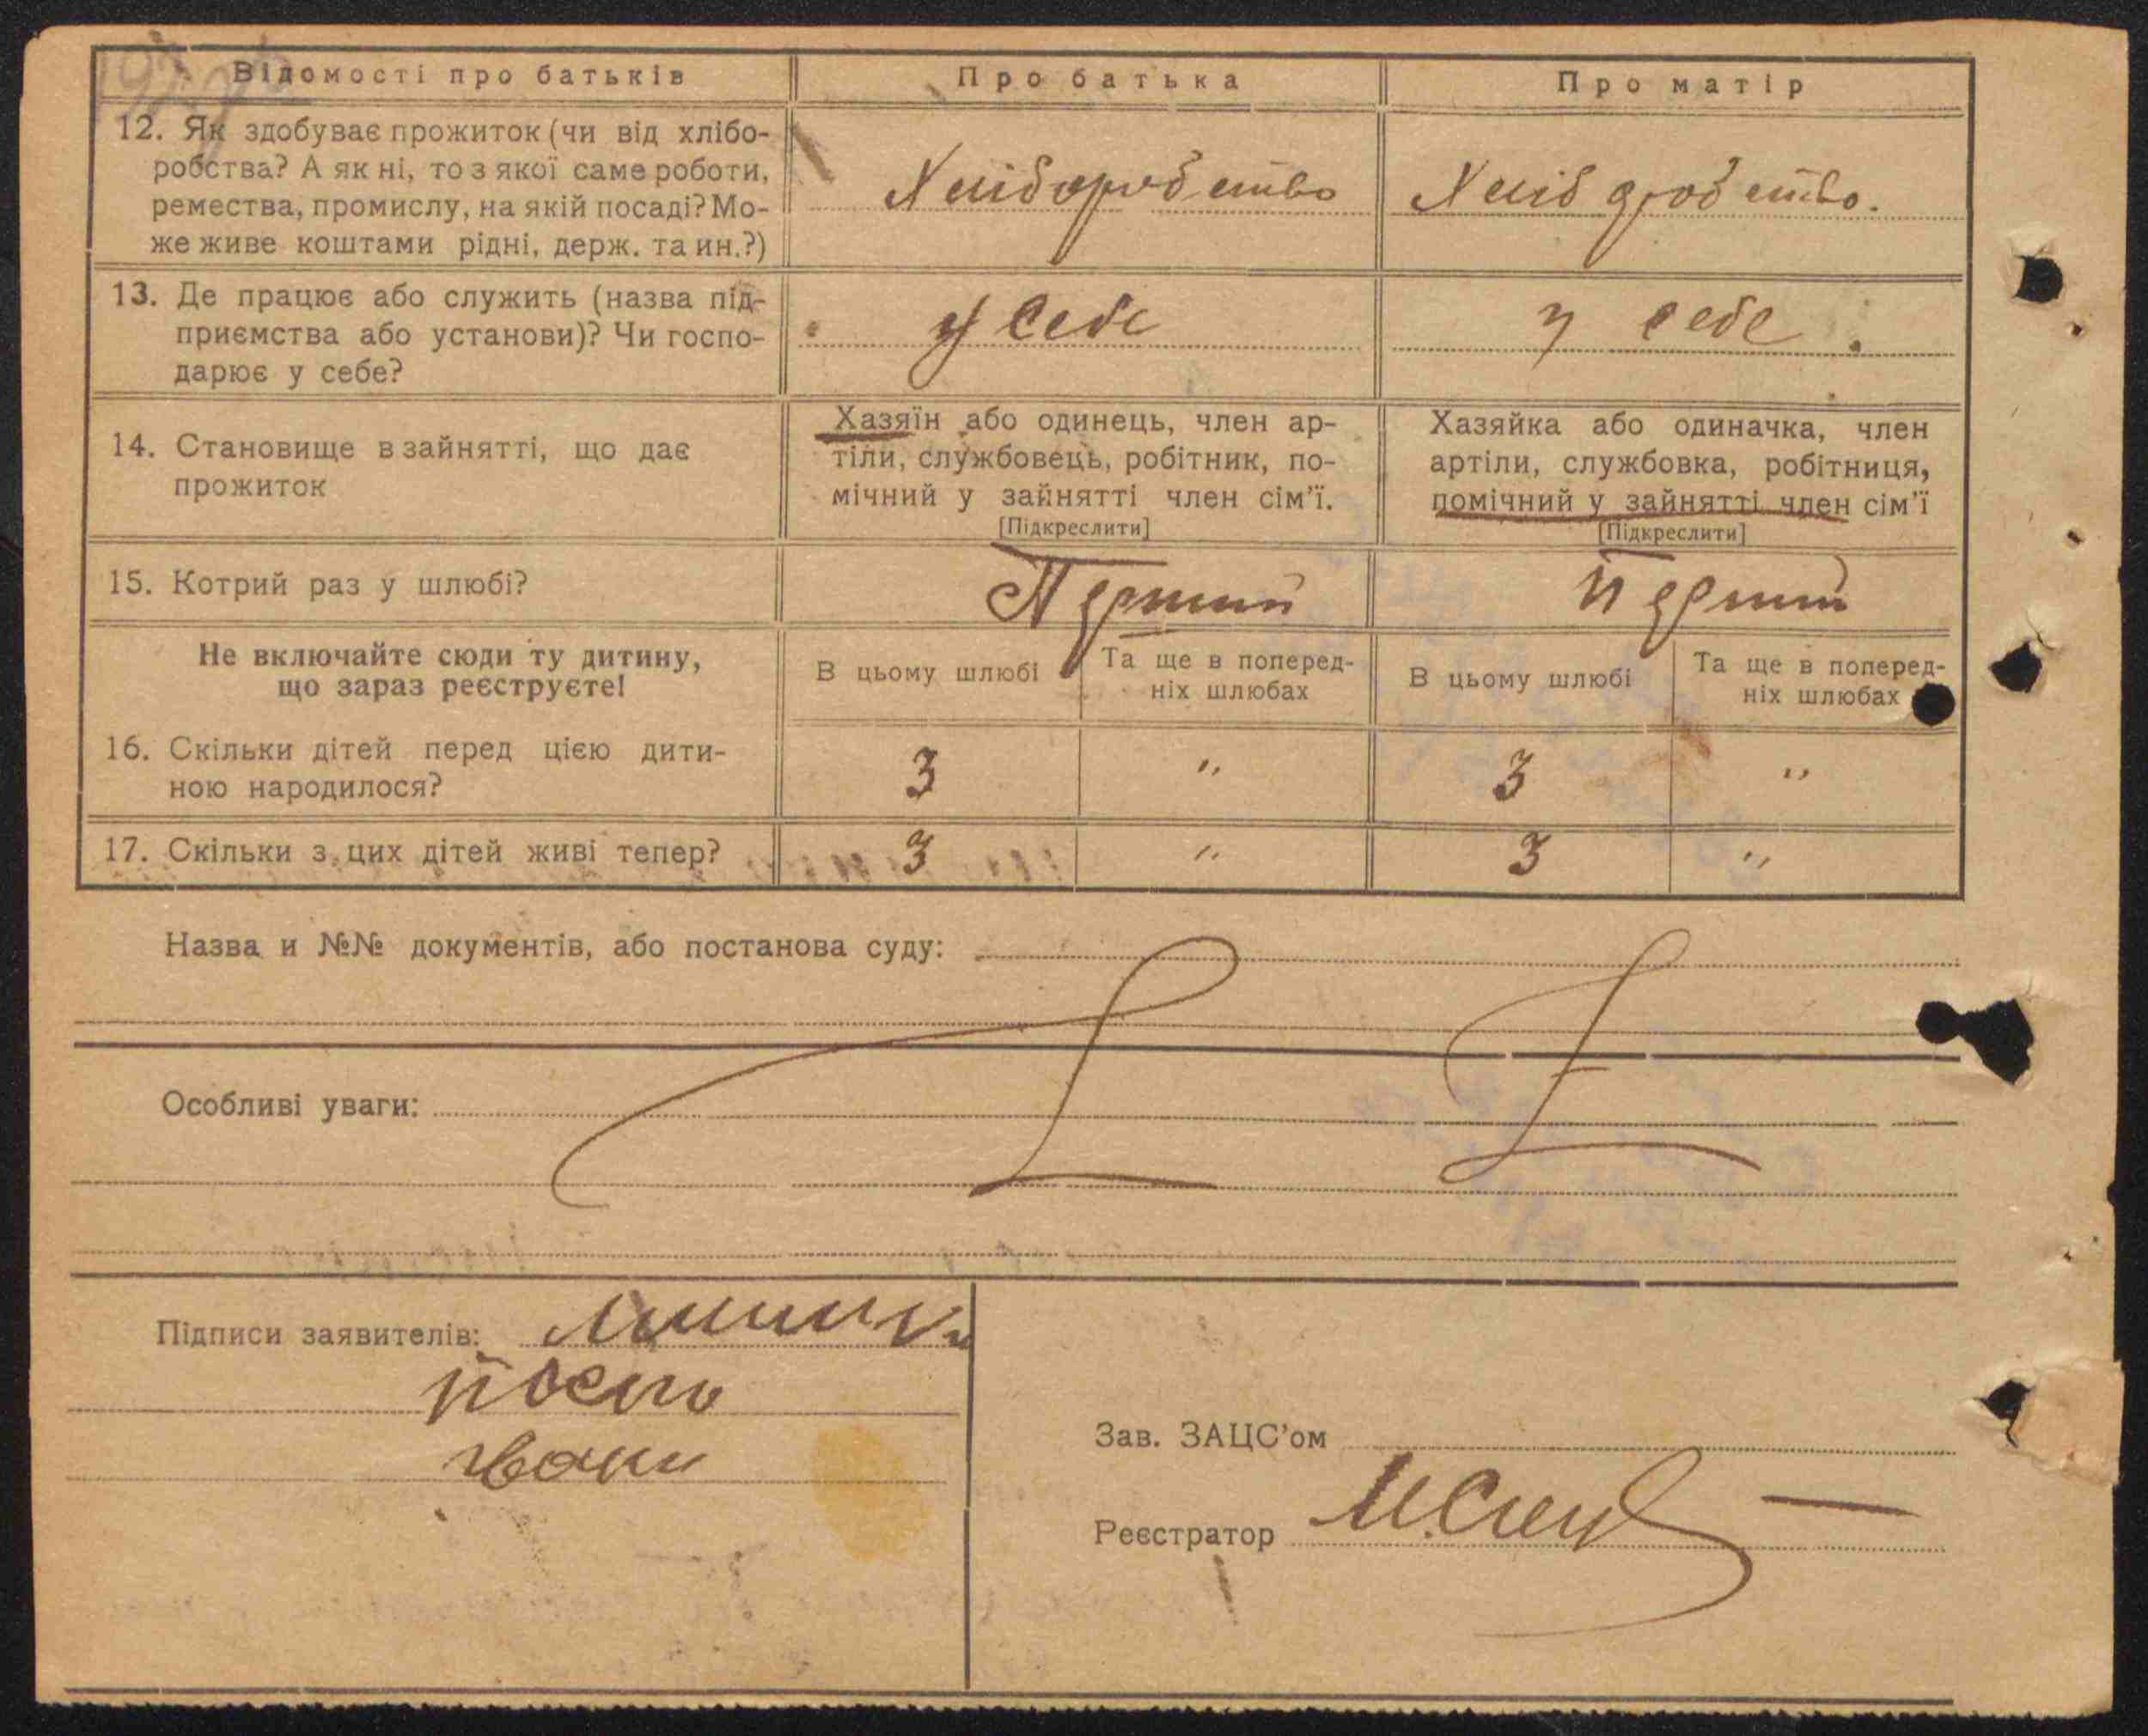 Відомості про батьків
Про батька
Про матір
12. Як здобуває прожиток (чи від хлібо-
робства? А як ні, то з якої саме роботи,
ремества, промислу, на якій посаді? Мо-
же живе коштами рідні, держ. та ин.?)
Хліборобство
Хліборобство.
13. Де працює або служить (назва під-
приємства або установи)? Чи госпо-
дарює у себе?
у себе
у себе.
14. Становище в зайнятті, що дає
прожиток
Хазяїн або одинець, член ар-
тіли, службовець, робітник, по-
мічний у зайнятті член сім’ї.
[Підкреслити]
Хазяйка або одиначка, член
артіли, службовка, робітниця,
помічний у зайнятті член сім’ї
[Підкреслити]
15. Котрий раз у шлюбі?
Перший
Перший
Не включайте сюди ту дитину,
що зараз реєструєте!
В цьому шлюбі
Та ще в поперед-
ніх шлюбах
В цьому шлюбі
Та ще в поперед-
ніх шлюбах
16. Скільки дітей перед цією дити-
ною народилося?
3 " 3 "
17. Скільки з цих дітей живі тепер?
3 " 3 "
Назва и №№ документів, або постанова суду:
Особливі уваги:
Підписи заявителів:
Зав. ЗАЦС’ом
Реєстратор